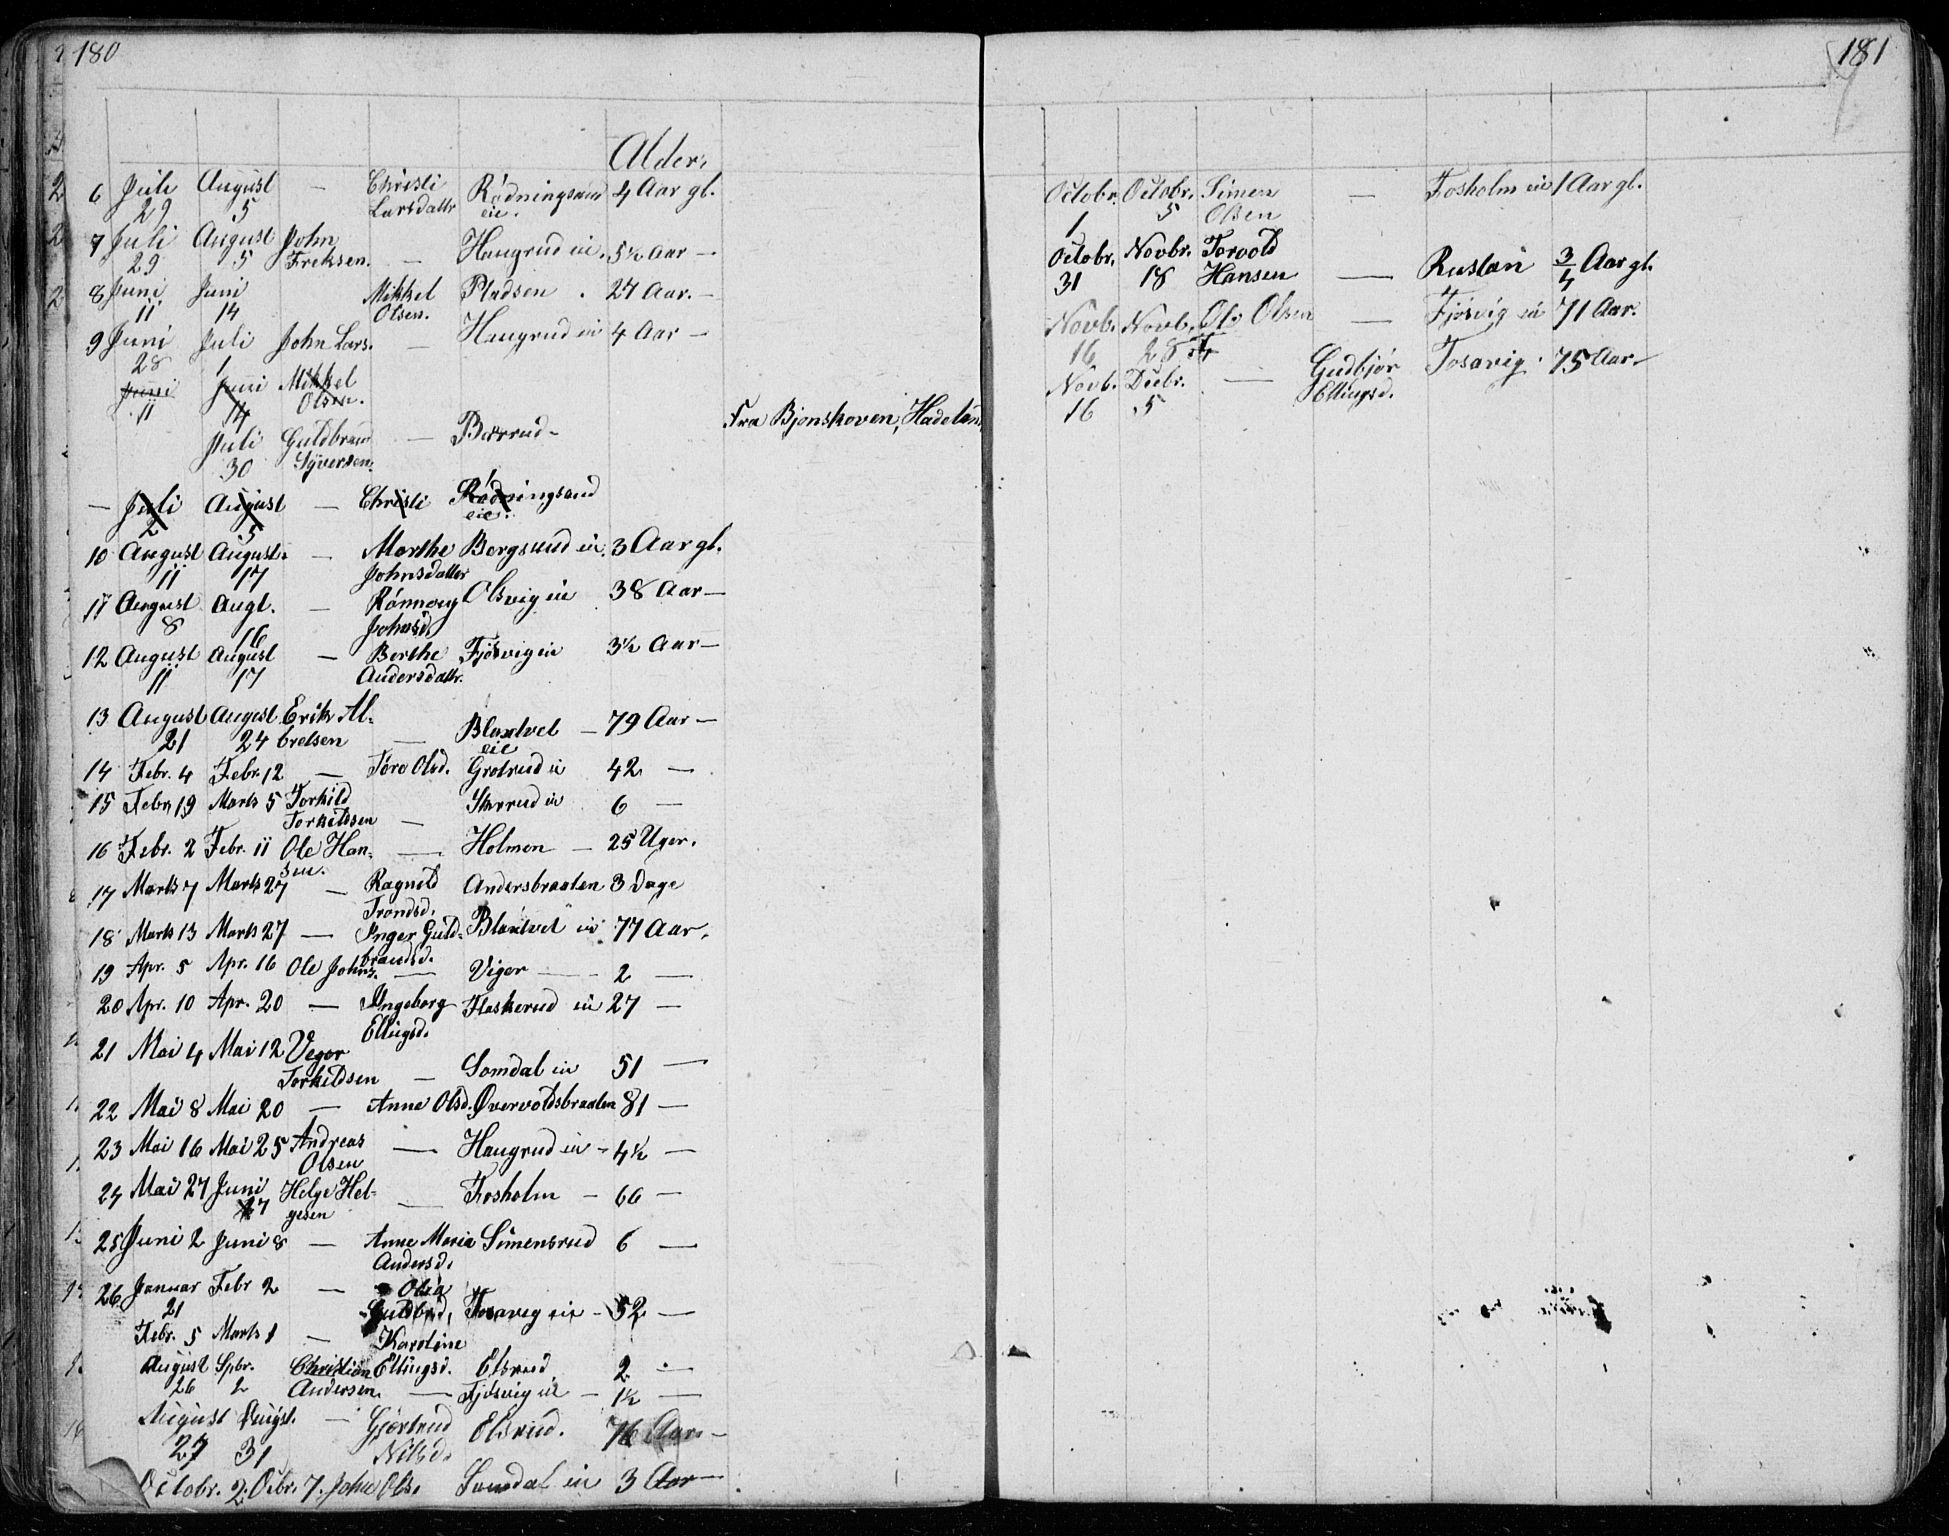 180
Alder.
6 Juli August — Christi Rødningsand 4 Aar gl.
29 5 Larsdattr eie.
7 Juli August John — Haugrud eie. 5½ Aar —
29 5 Freksen.
8 Juni Juni Mikkel Pladsen . 27 Aar. —
11 14 Olsen.
9 Juni Juli John Lars. — Haugrud eie 4 Aar —
28 1
Juni Juni Mikkel
11 14 Olsen.
Juli Guldbrand — Fra Bjonskoven, Hadeland
30 Syversen.
— Juli August — Christi Rødningsand
2 5 eie.
10 August August. — Marthe Borgerud eie. 3 Aar gl.
11 17 Johnsdatter
11 August Augt. — Rønnoug Olsvig eie 38 Aar —
8 16 Johnsd.
12 August August — Berthe Fjøsvig eie 3½ Aar —
11 17 Andersdattr.
13 August August Erik Al- — 79 Aar —
21 24 bretsen eie
14 Febr. 4 Febr. 12 — Tore Olsd. Grøterud eie 42 —
15 Febr. 19 Marts 5 Torkild 6 —
Torkildsen —
16 Febr. 2 Febr. 11 Ole Han- — Holmen — 25 Uger.
sen.
17 Marts 7 Marts 27 — Ragnild Andersbraaten 3 Dage
Trondsd.
18 Marts 13 Marts 27 — Inger Guld- eie 77 Aar.
brandsd.
19 Apr. 5 Apr. 16 Ole Johns. — Viger — 2 —
20 Apr. 10 Apr. 20 — Ingeborg Flaskerud eie 27 —
Ellingsd.
21 Mai 4 Mai 12 Veger
Torkildsen — Somdal eie 51 —
22 Mai 8 Mai 20 — Anne Olsd. Øvervoldsbraaten 81 —
23 Mai 16 Mai 25 Andreas — Haugrud eie - 4½ —
Olsen
24 Mai 27 Juni Helge Hel- Fosholm — 66 —
17 gesen —
25 Juni 2 Juni 8 — Anne Maria Simensrud 6 —
Andersd.
26 Januar Febr 2 — Olea
21 Guldbrd. Tosavig eie - 52 —
Febr. 5 Marts 1 — Karoline
August Spbr. Christian Ellingsd. Elsrud 2 —
26 2 Andersen. — Fjøsvig eie — 1½ —
August Augst. — Gjertrud Elsrud. 76 Aar —
27 31 Nilsd.
Octobr. 2. Ocbr. 7. John Ols. Somdal eie 3 Aar —
181
Octobr. Octobr. Simen — Fosholm eie 1 Aar gl.
1 5 Olsen
Octobr. Novbr. Torvold
31 18 Hansen — Rustan 3/4 Aar gl.
Novb. Novb. Ole Olsen — Fjøsvig eie 71 Aar.
16 28
Novb. Decbr. — Gudbjør Tosavig . 75 Aar —
16 5 Ellingsd.